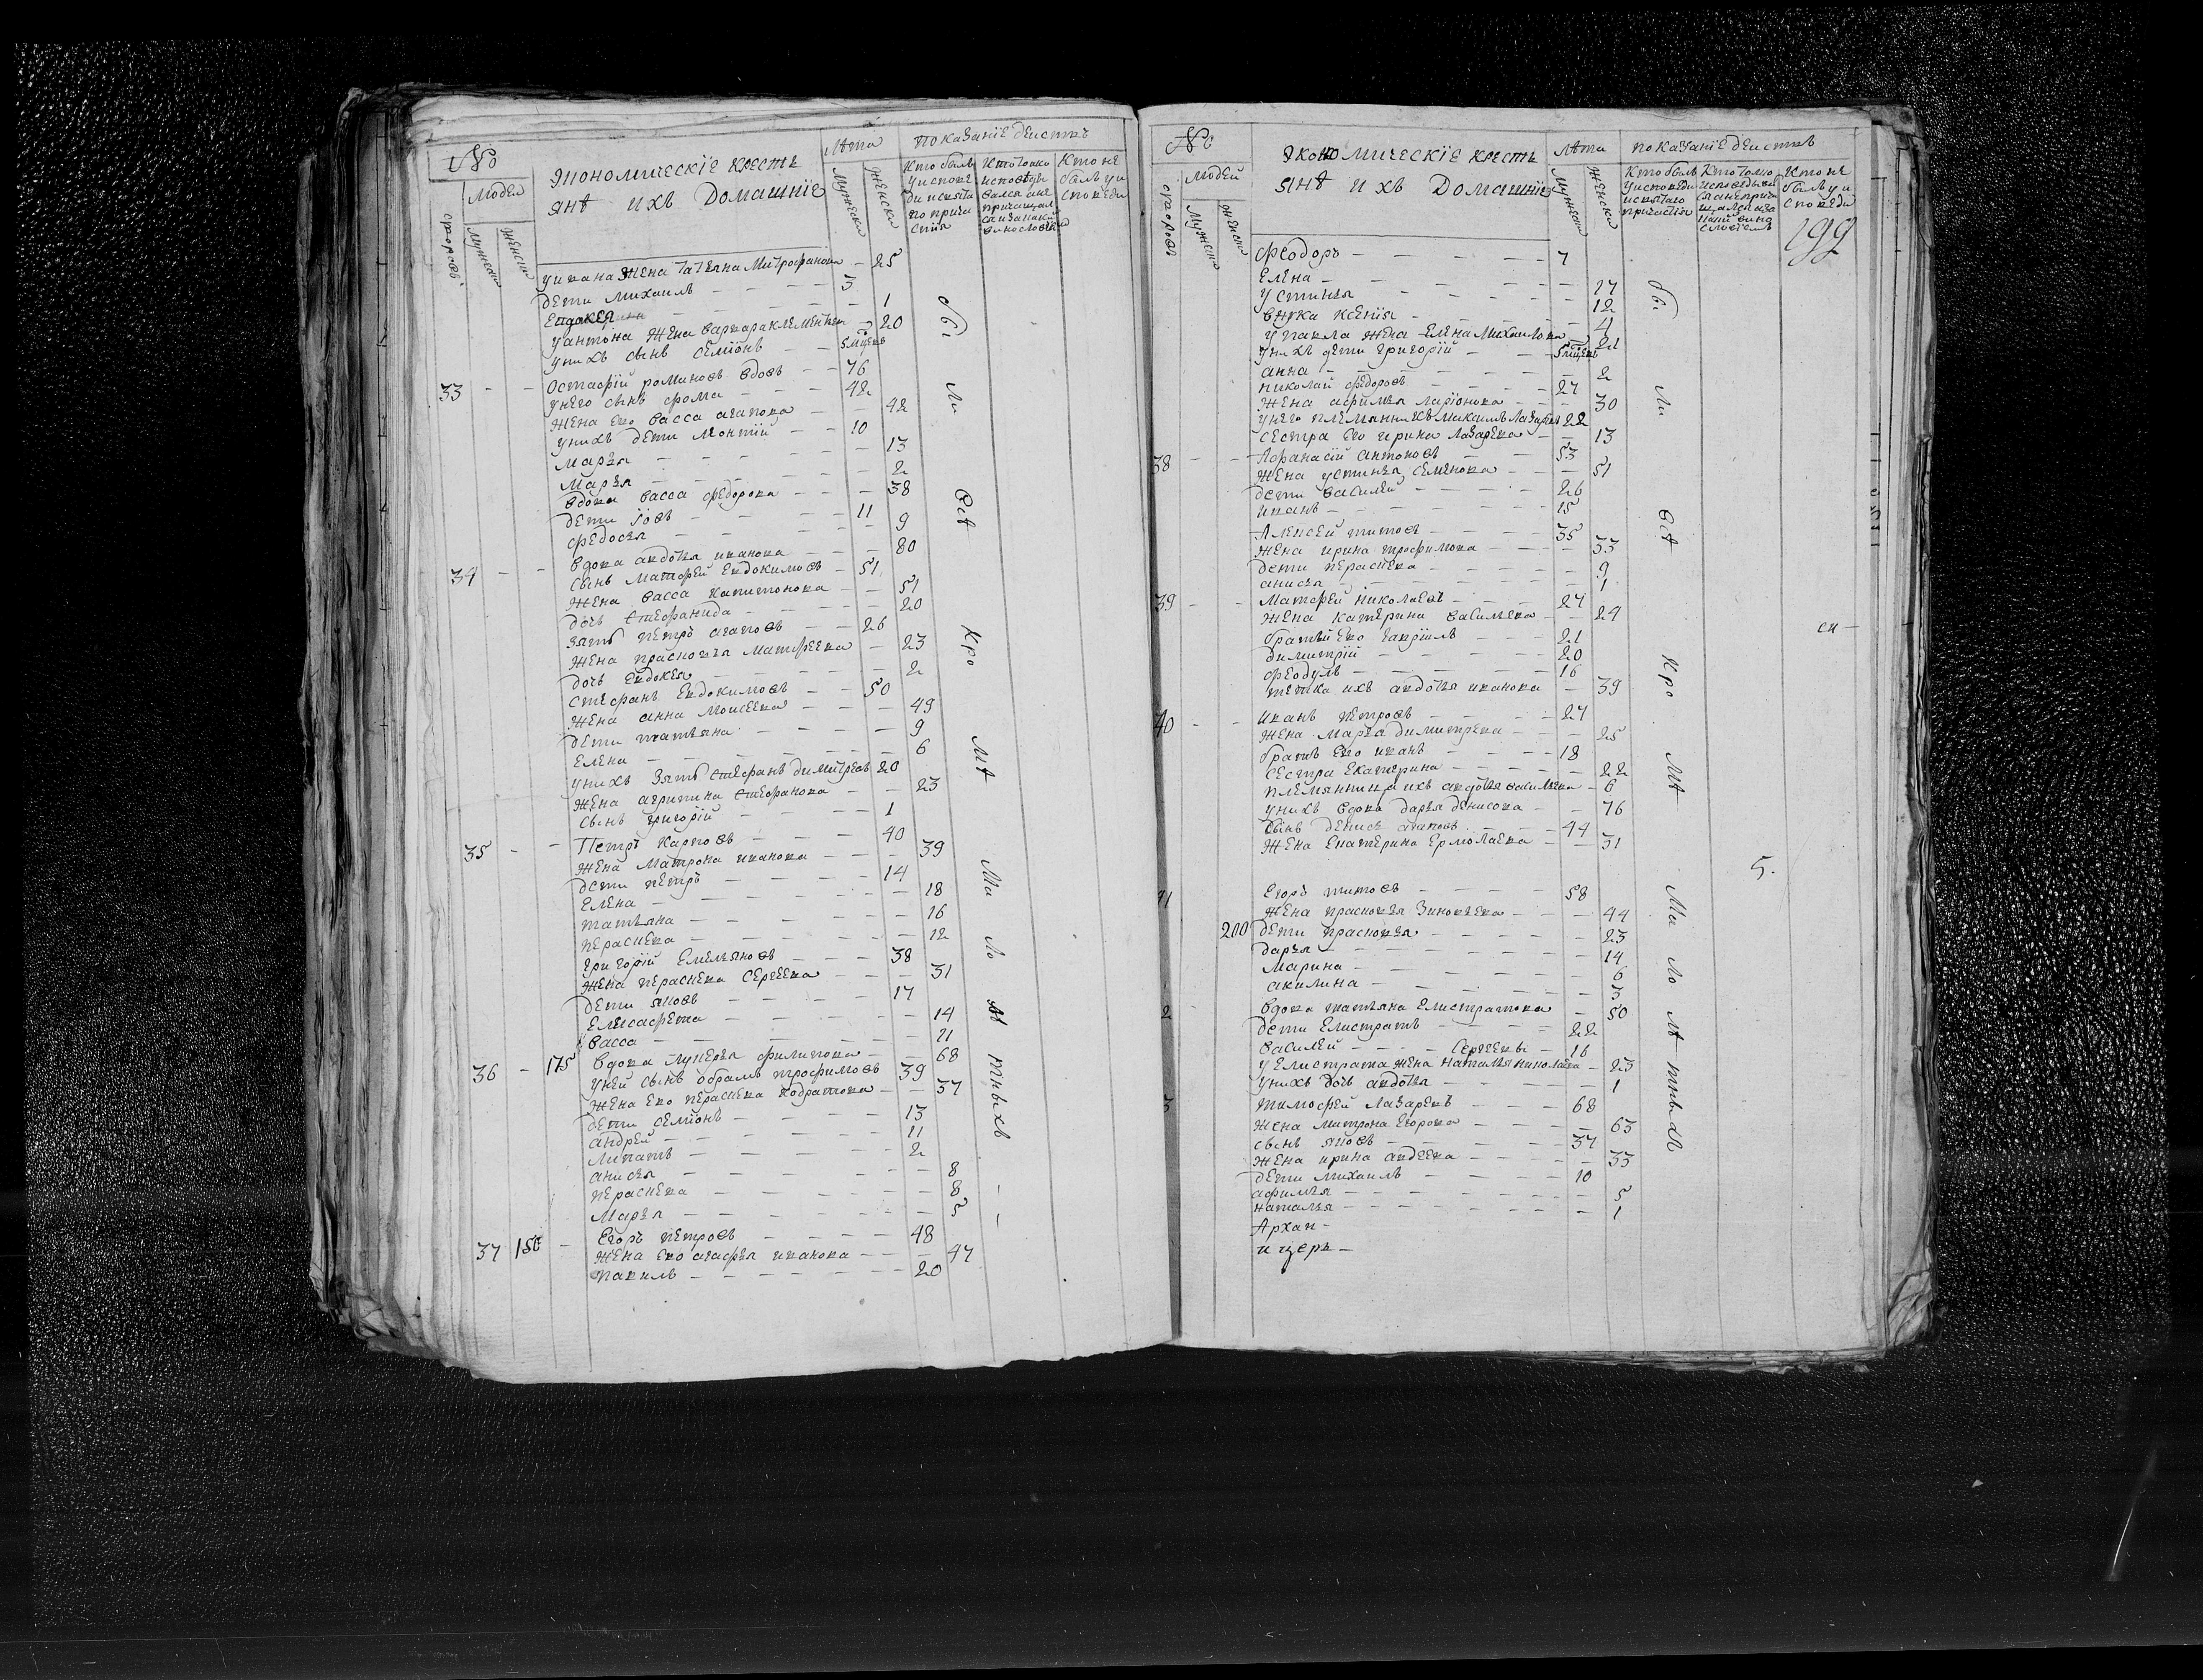 №
Людей
Економическіе кресть
янѣ ихъ Домашніе
лѣта
Показаніе действъ
дворовъ
Мужеска
Женска
Мужески
Женски
Кто былъ
у испове
ди и свята
го прича
стія
Кто токмо
исповеды
вался а не
причащал
ся и за какой
виною
Кто не
былъ у и
споведи
у ивана жена татьяна Митрофанова — 25
дети Михаилъ — 3
Евдокея — 1
у антона жена варвара клементева — 20
у нихъ сынъ семіонъ — 5 мцевъ
33 Остафій романовъ вдовъ — 76
у него сынъ фома — 42
жена ево васса агапова — 42
у нихъ дети леонтій — 10
марья — 13
марья — 2
вдова васса федорова — 38
дети іовъ — 11
федосья — 9
вдова авдотья иванова — 80
34 сынъ матфей евдокимовъ — 51
жена васса капитонова — 51
дочь стефанида — 20
зять петръ агаповъ — 26
жена прасковья матфеева — 23
дочь евдокея — 2
стефанъ евдокимовъ — 50
жена анна моисеева — 49
дети татьяна — 9
елена — 6
у нихъ зять стефанъ димитревъ 20
жена агрипина стефанова — 23
сынъ григорій — 1
35 Петръ карповъ — 40
жена матрона иванова — 39
дети петръ — 14
елена — 18
татьяна — 16
пераскева — 12
григорій емельяновъ — 38
жена пераскева сергеева — 31
дети яковъ — 17
елисафета — 14
васса — 11
36 175 вдова лукерья филипова — 68
у ней сынъ абрамъ трофимовъ 39
жена ево пераскева кодратова — 37
дети семіонъ — 13
андрей — 11
липатъ — 2
анисья — 8
пераскева — 8
марья — 5
37 Егоръ петровъ — 48
жена ево агафья иванова — 47
павилъ — 20
бы
ли
всѣ
кро
мѣ
ма
ло
лѣ
тныхъ
№
Людей
Економическіе кресть
янѣ ихъ Домашніе
лѣта
показаніе действъ
дворовъ
Мужеска
Женска
Мужески
Женски
Кто былъ
у исповеди
и святаго
причастія
Кто токмо
исповедывал
Кто не
былъ у и
споведи
199
Феодоръ — 7
Елена — 17
Устинья — 12
внука ксенія — 4
у павла жена елена михаилова — 21
у нихъ дети григорій — 5 мцевъ
анна — 2
николай федоровъ — 27
жена афимья ларіонова — 30
у него племянникъ максимъ лазаревъ 22
сестра ево ирина лазарева — 13
38 Афанасій антоновъ — 53
жена устинья семенова — 51
дети василей — 26
иванъ — 15
Алексей титовъ — 35
жена ирина трофимова — 33
дети пераскева — 9
анисья — 1
39 Матфей николаевъ — 27
жена катерина васильева — 24
братьи ево гавріилъ — 21
димитрій — 20
феодулъ — 16
тетка ихъ авдотья иванова — 39
40 Иванъ петровъ — 27
жена марья димитрева — 25
братъ ево иванъ — 18
сестра екатерина — 22
племянница ихъ авдотья васильева — 6
у нихъ вдова дарья денисова — 76
сынъ денисъ агаповъ — 44
жена екатерина ермолаева — 31
5.
Егоръ титовъ — 58
жена прасковья зиновьева — 44
200 дети прасковья — 23
дарья — 14
марина — 6
акилина — 3
2 вдова татьяна елистратова — 50
дети елистратъ — 22
василей — сергеевы — 16
у елистрата жена наталья николаева — 23
у нихъ дочь авдотья — 1
3 тимофей лазаревъ — 68
жена митрона егорова — 63
сынъ яковъ — 37
жена ирина авдеева — 33
дети михаилъ — 10
афимья — 5
наталья — 1
Архан —
и церк —
бы
ли
всѣ
кро
мѣ
ма
ло
лѣ
тныхъ